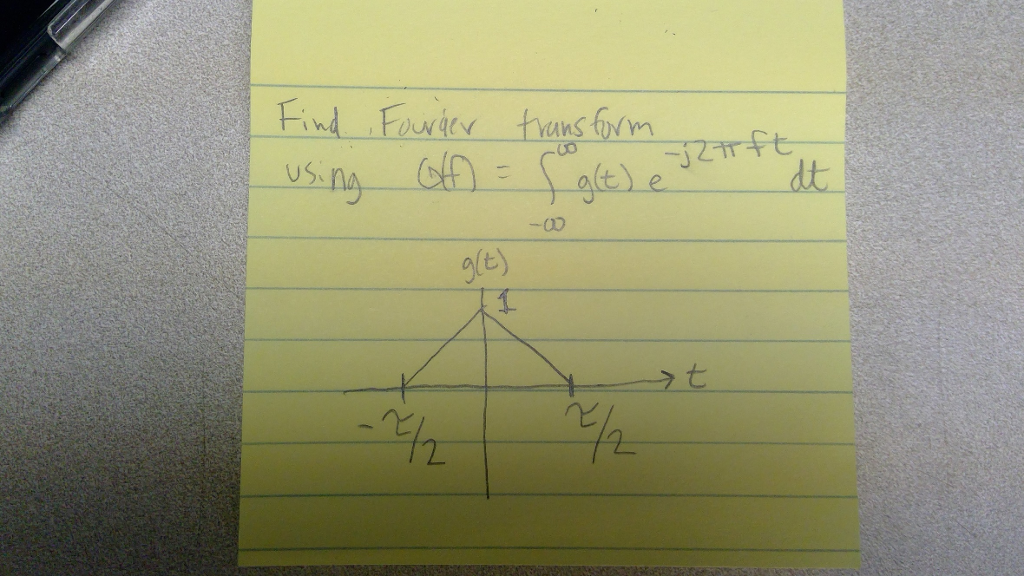 Find Fourier transform
using G(f) = ∫_{-∞}^{∞} g(t) e^{-j2πft} dt
g(t)
1
t
-τ/2 τ/2